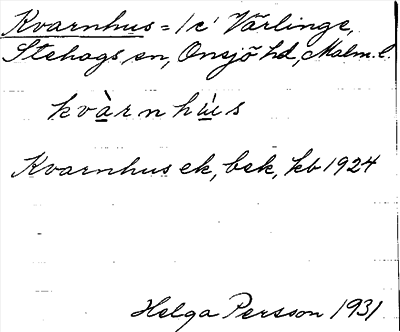 Kvarnhus = 1c' Värlinge,
Stehags sn, Onsjö hd, Malm. l.
kvàrnhùs
Kvarnhus ek, bek, kb 1924
Helga Persson 1931